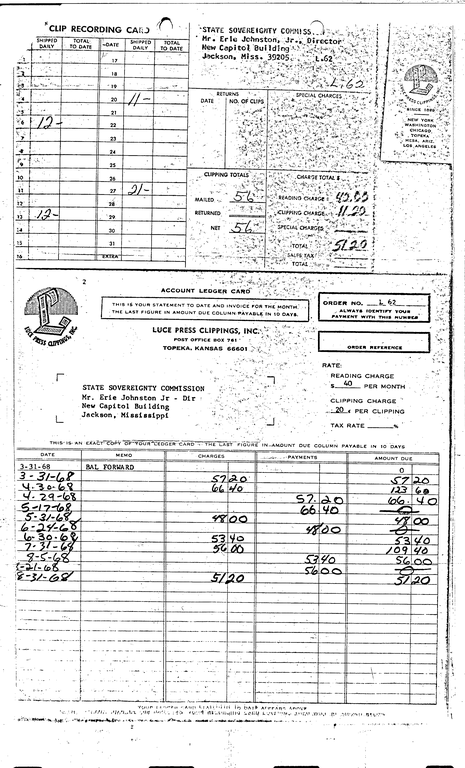 CLIP RECORDING CARD
SHIPPED DAILY TOTAL TO DATE DATE SHIPPED DAILY TOTAL TO DATE
1 17
2 18
3 19
4 20 11-
5 21
6 12- 22
7 23
8 24
9 25
10 26
11 27 21-
12 28
13 12- 29
14 30
15 31
16 EXTRA
STATE SOVEREIGNTY COMMISS
Mr. Erle Johnston, Jr., Director
New Capitol Building
Jackson, Miss. 39205 L.62
L.62
RETURNS
DATE NO. OF CLIPS
SPECIAL CHARGES
CLIPPING TOTALS
MAILED 56
RETURNED
NET 56
CHARGE TOTALS
READING CHARGE 40.00
CLIPPING CHARGE 11.20
SPECIAL CHARGES
TOTAL 51.20
SALES TAX
TOTAL
LUCE PRESS CLIPPINGS
SINCE 1888
NEW YORK
WASHINGTON
CHICAGO
TOPEKA
MESA, ARIZ.
LOS ANGELES
2
LUCE PRESS CLIPPINGS, INC.
ACCOUNT LEDGER CARD
THIS IS YOUR STATEMENT TO DATE AND INVOICE FOR THE MONTH.
THE LAST FIGURE IN AMOUNT DUE COLUMN PAYABLE IN 10 DAYS.
LUCE PRESS CLIPPINGS, INC.
POST OFFICE BOX 761
TOPEKA, KANSAS 66601
ORDER NO. L 62
ALWAYS IDENTIFY YOUR
PAYMENT WITH THIS NUMBER
ORDER REFERENCE
STATE SOVEREIGNTY COMMISSION
Mr. Erle Johnston Jr - Dir
New Capitol Building
Jackson, Mississippi
RATE:
READING CHARGE
$ 40 PER MONTH
CLIPPING CHARGE
20 ¢ PER CLIPPING
TAX RATE %
THIS IS AN EXACT COPY OF YOUR LEDGER CARD - THE LAST FIGURE IN AMOUNT DUE COLUMN PAYABLE IN 10 DAYS
DATE MEMO CHARGES PAYMENTS AMOUNT DUE
3-31-68 BAL FORWARD 0
3-31-68 57 20 57 20
4-30-68 66 40 123 60
4-29-68 57.20 66.40
5-17-68 66.40 0
5-31-68 48 00 48 00
6-24-68 48 00 0
6-30-68 53 40 53 40
7-31-68 56 00 109 40
8-5-68 53 40 56 00
8-21-68 56 00 0
8-31-68 51 20 51 20